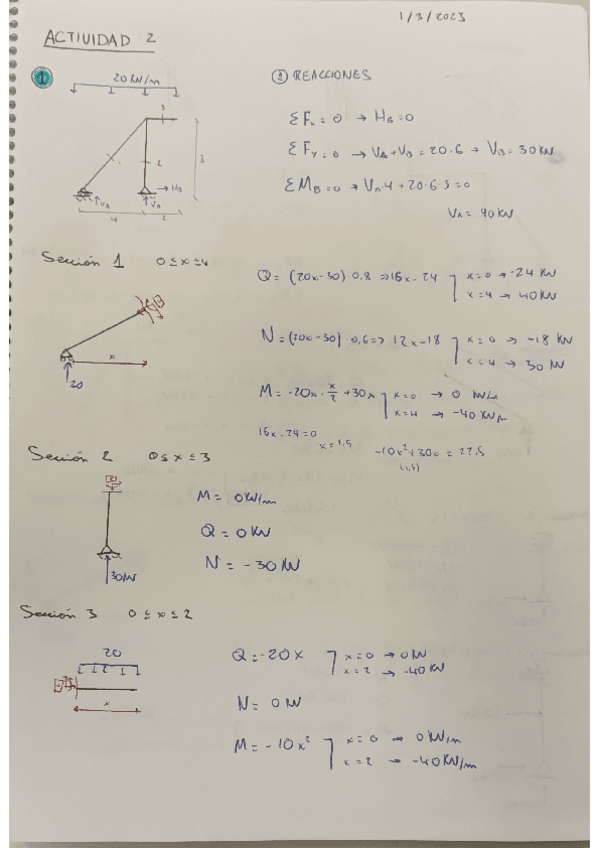 1/3/2023
ACTIVIDAD 2
1
20 KN/m
3
1
2
3
HB
VA
VB
4
2
① REACCIONES
ΣFx = 0 → HB = 0
ΣFy = 0 → VA + VB = 20·6 → VB = 30 KN
ΣMB = 0 → VA·4 + 20·6·
VA = 90 KN
Sección 1 0 ≤ x ≤ 4
x
20
Q = (20x-30)·0.8 => 16x-24
x=0 → -24 KN
x=4 → 40 KN
N = (20x-30)·0,6 => 12x-18
x=0 → -18 KN
x=4 → 30 KN
M = -20x·x/2 + 30x
x=0 → 0 KN/m
x=4 → -40 KN/m
16x-24=0
x=1,5
-10x²+30x = 22,5
(1,5)
Sección 2 0 ≤ x ≤ 3
30KN
M = 0 KN/m
Q = 0 KN
N = -30 KN
Sección 3 0 ≤ x ≤ 2
20
x
Q = -20x
x=0 → 0 KN
x=2 → -40 KN
N = 0 KN
M = -10x²
x=0 → 0 KN/m
x=2 → -40 KN/m